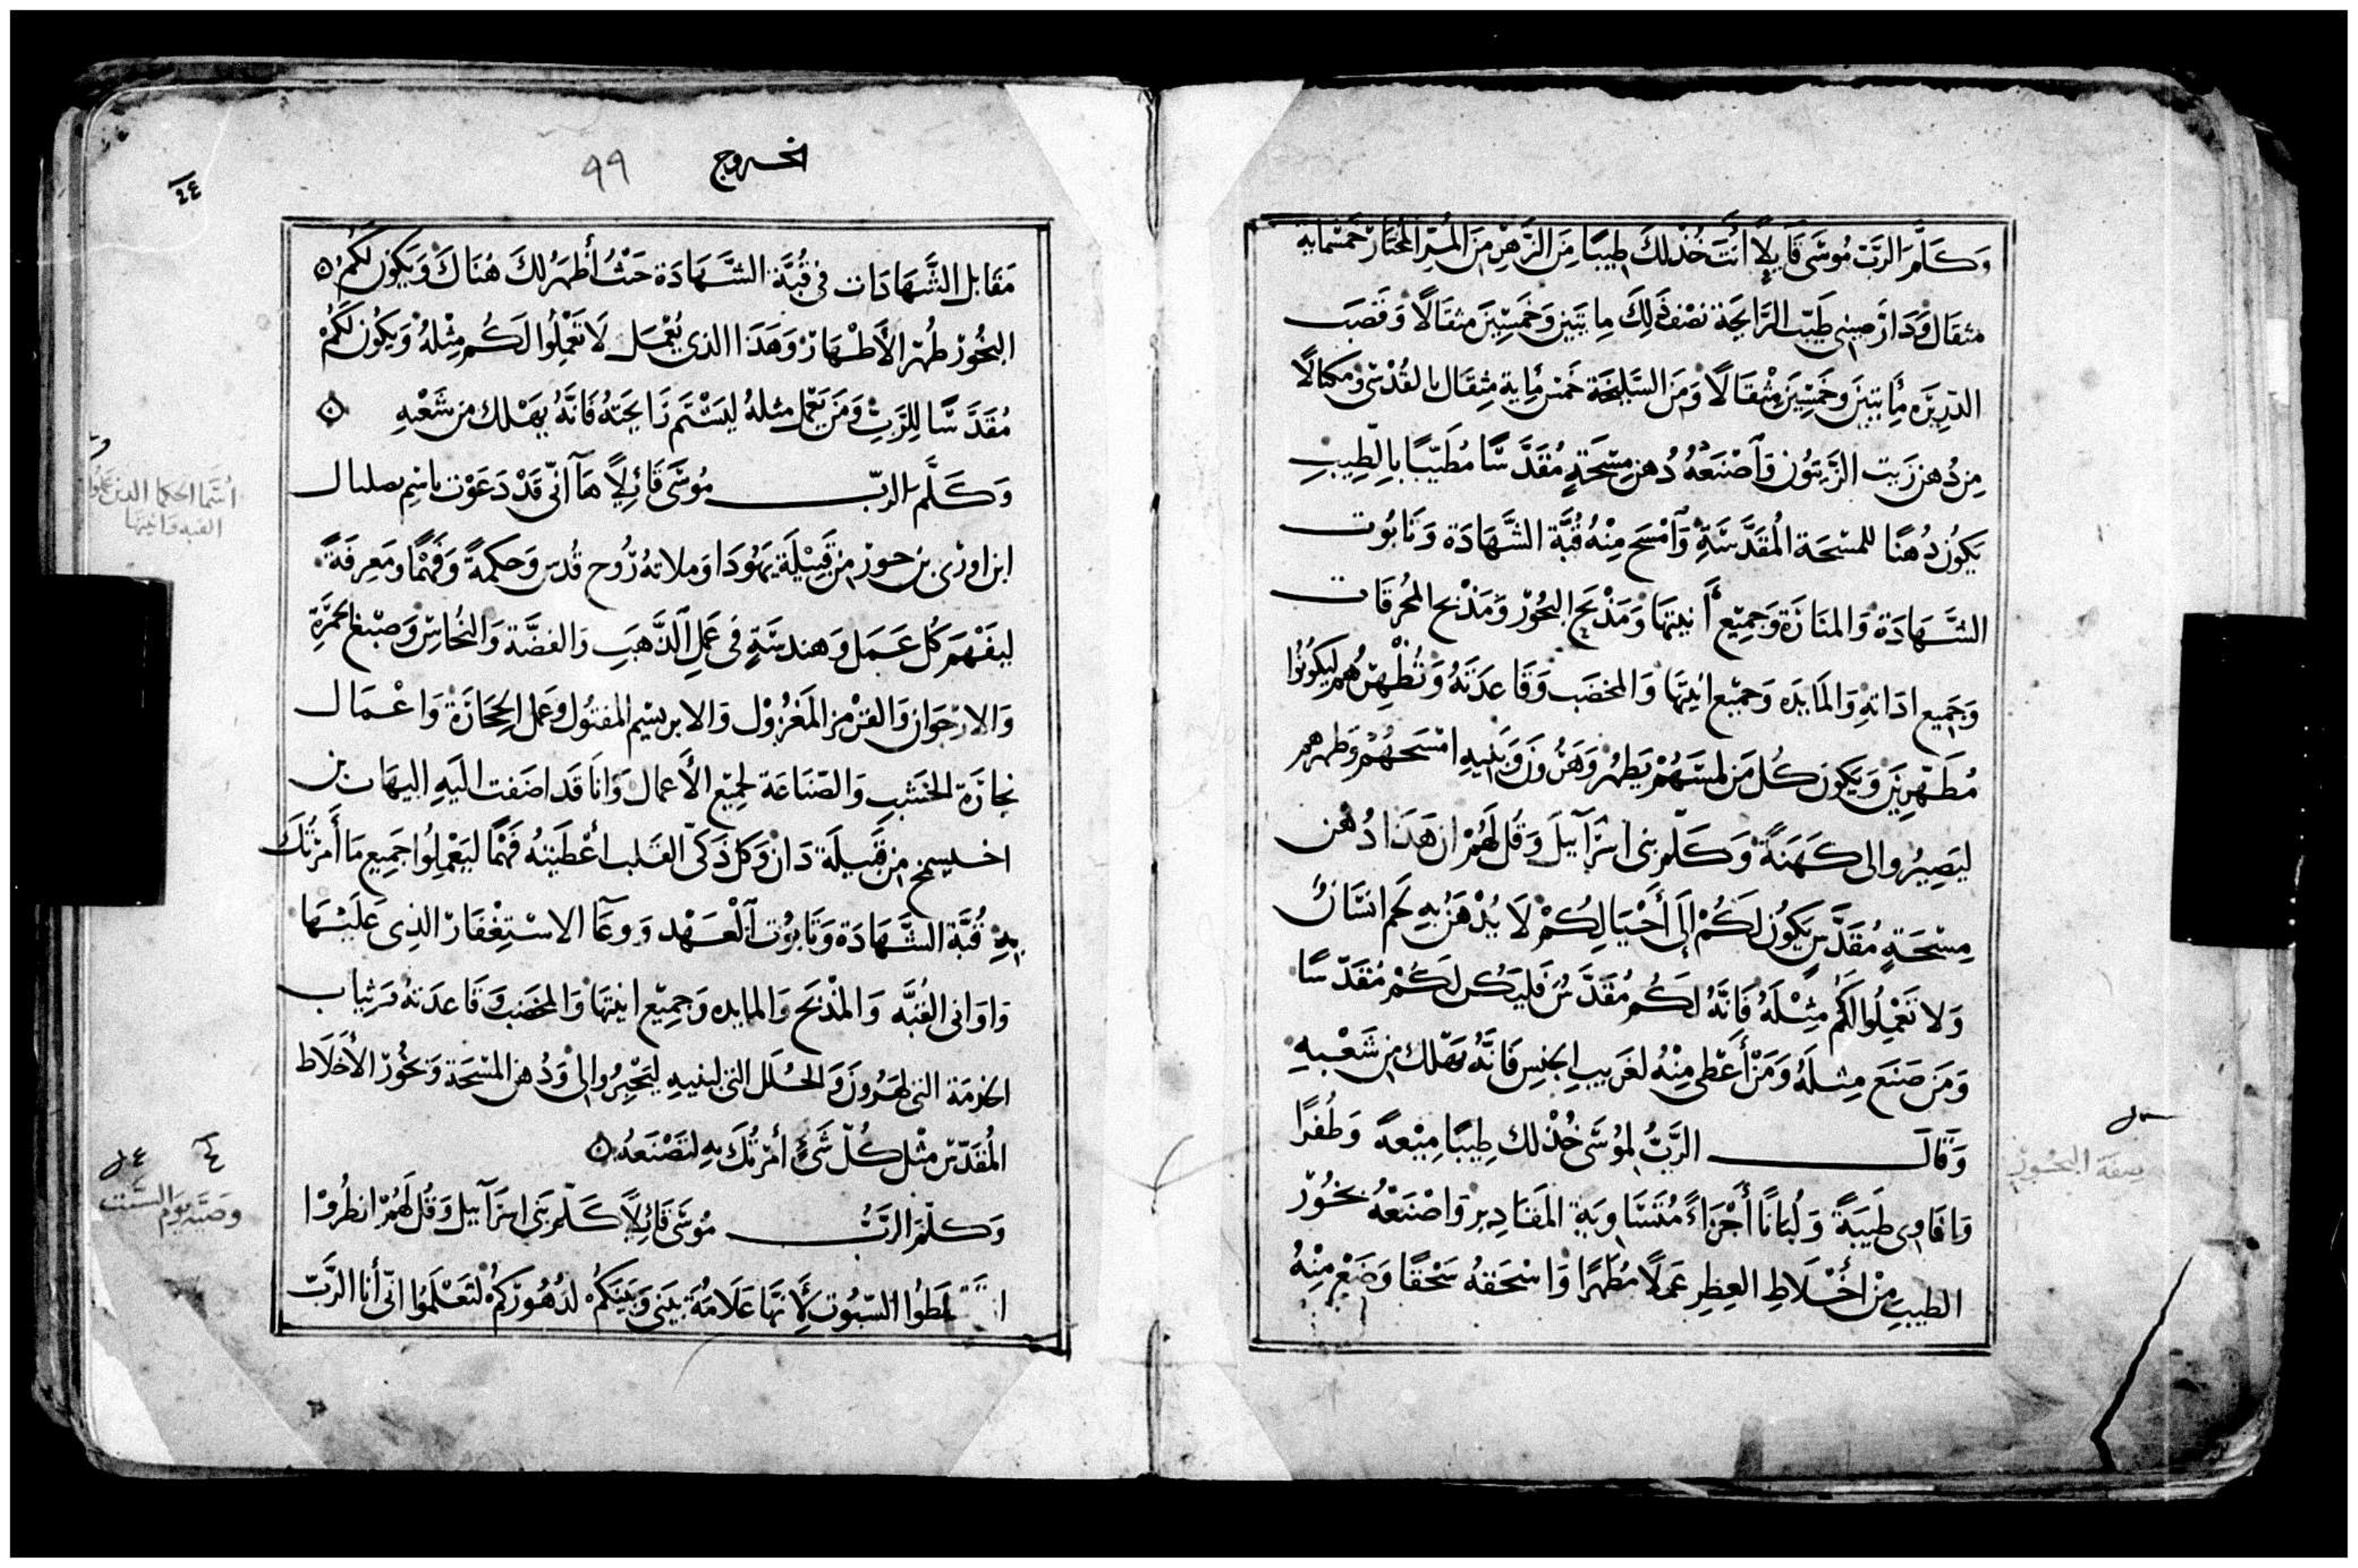 وَكَلَّمَ الرَبّ مُوسَى قَايِلًا أَنتَ خُذْ لكَ طِيبًا مِنَ الزَهِرْ مِنَ المُرّ المُختَارْ خَمسْمايه
مثقال وَدَارَصِينِى طَيّبْ الرَّايِحَة نصْف ذَلِكَ مِايتَين وَخَمسِّينَ مثقَالًا وَقَصَب
الدّرِيرَه مِأيتَينَ وخَمسِينَ مِثْقَالًا وَمَنَ السَّلِيخَة خَمْس مِأية مِثقَال بالقُدْسّ وَمكيَالًا
مِن دُهن زَيت الزَيتوُن وَاصْنَعْهُ دُهن مِسْحَةٍ مُقَدَّسًا مُطَيّبًا بِالطِيبِ
يَكُونُ دُهنًا للمسْحَة المُقَدَّسَةِ وَآمْسَح مِنْهُ قُبَّة الشَّهَادَة وَتَابُوت
الشَّهَادَة وَالمنَارَة وَجَمِيْع أَنيتهَا وَمَذْبَح البخُورْ وَمَذْبح المُحرقَات
وَجَمِيع ادَاتهِ وَالمَايدَه وَجَميْع انيتهَا وَالمخضَب وَقَاعدَتَهُ وَتُطْهِرّهُم ليَكُونُوا
مُطَهّرِينَ وَيَكون كُل مَن لمسَّهُمْ يَطهُر وَهَرُونَ وَبَنِيهِ امْسَحهُمْ وَطهرهم
ليَصِيرُوا لى كَهَنَةً وَكَلّم بنى اسْرَآييلَ وَقُل لَهُمْ ان هَذَا دُهْن
مِسْحَةٍ مُقَدَّسٍ يَكُونُ لَكُمْ إلَى أَحْيَالِكُمْ لَا يُدْهَنُ بهِ لَحم انسَّانٌ
وَلا تَعْمِلُوا لَكُمْ مِثِلَهُ فَانَّهُ لكُم مُقَدَّسٌ فَليَكُن لكُمْ مُقَدّسًا
وَمَن صَنَعَ مِثلَهُ وَمَنْ أَعْطى مِنْهُ لغَريبِ الجنِسِ فَانَّهُ يَهْلك مِن شَعْبهِ
وَقَالَ الرَّبُّ لمُوسَّى خُذْ لك طِيبًا مِيْعهً وَطُفرًا
وَاقَاوِى طَيبَةً وَلُبَانًا أَجْزَاءً مُتَسَّاوِيَة المقَادِير وَاصْنَعْهُ بخُوْرّ
الطيبِ مِنْ أخْلَاطِ العِطِر عَملًا مُطَهرًا وَاسْحَقهُ سَحْقًا وَضَعْ مِنْهُ
صفَة البخُور
الخروج
٩٩
مَقَابل الشَّهَادَات فى قُبَّة الشَّهَادَة حَثُ أَظهَرُ لكَ هُنَاكَ وَيَكُون لَكُمْ
البخُورْ طُهْر الأَطْهَارْ وَهَذَا الذى يُعْمَل لَا تَعْمِلُوا لَكُم مِثْلهُ وَيَكُون لَكُمْ
مُقَدَّسًا لِلرَّبِ وَمَن يَعْمِل مثلهُ ليَشْتَم رَايحَتهُ فَانَّهُ يهْلك مِن شَعْبهِ
وَكَلَّمَ الربّ مُوسَّى قَائِلًا هَآ انّى قَدْ دَعَوْت باسِم بصليال
ابن اورْى بن حورْ مِن قَبِيْلَة يَهُودَا وَملاتهُ رُوح قُدس وَحكمةً وَفَهْمًا وَمَعرِفَةً
ليفْهَم كُل عَمَل وَهندسَّةٍ فى عَمَلِ الذَّهَبِ وَالفضَّة وَالنُحَاسّ وَصبْغ الحُمْرَةِ
وَالارْجَوَان وَالقرْمز المَغزُوْل وَالابريسْيم المفتُول وَعَمل الحِجَارَة وَاعْمَال
نجَارَة الخشَبِ وَالصّنَاعَة لجَمِيْع الأَعمالَ وَانَا قَد اضَفت اليَهِ اليهَاب بن
اخليسمح مِن قَبيلَة دَانْ وَكُل ذَكىّ القَلب اعْطَيتهُ فَهْمًا ليَعْمِلُوا جَمِيع مَا أَمَرْتُكَ
بِهِ قُبَّة الشَّهَادَة وَتَابوُت آلعَهْد وَوعَآ الاسْتِغْفَارْ الذِى عَلَيْهَا
وَاوَانى القُبَّه وَالمَذْبَح وَالمايده وَجَمِيْع انيتهَا وَالمخضَب وَقَاعدَتهُ وَثِيَاب
الخدمَة التى لهَرُونَ وَالحُلَل التى لبنيهِ ليَحْبِرُوا لى وَدُهن المسْحَة وَبخُورْ الأَخلَاط
المُقَدّسّ مثْل كُلّ شَىْءٍ أَمَرْتُكَ بهِ لتَصْنَعهُ
وَكلّمَ الرَّبُّ مُوسَّى قَائِلًا كَلّم بَنى اسرَآييل وَقُل لَهُمْ انظُرُوْا
السّبُوت لأَنهَا عَلَامَةٌ بَينى وَبَينَكُمْ لدُهُورِكُمْ لتَعْلَمُوا انّى أَنَا الرَّبّ
اسْمَا الحكما الدين عملوا
القبه وَانيتها
وَصيَّة يوَم السَّبت